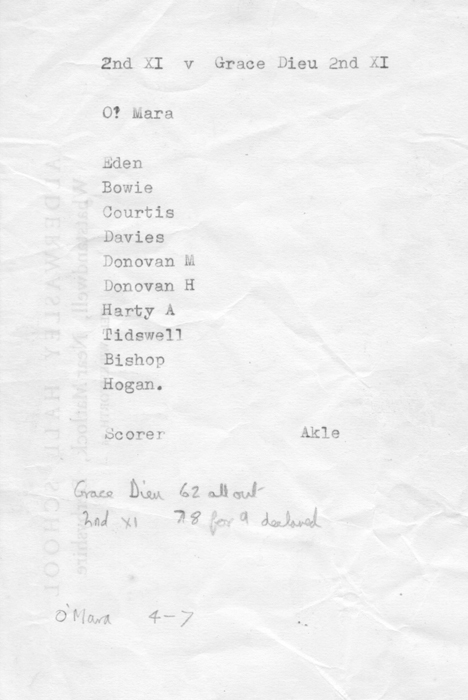 2nd XI v Grace Dieu 2nd XI
O' Mara
Eden
Bowie
Courtis
Davies
Donovan M
Donovan H
Harty A
Tidswell
Bishop
Hogan.
Scorer Akle
Grace Dieu 62 all out
2nd XI 78 for 9 declared
O'Mara 4-7
ALDERWASLEY HALL SCHOOL
Whatstandwell, Near Matlock,